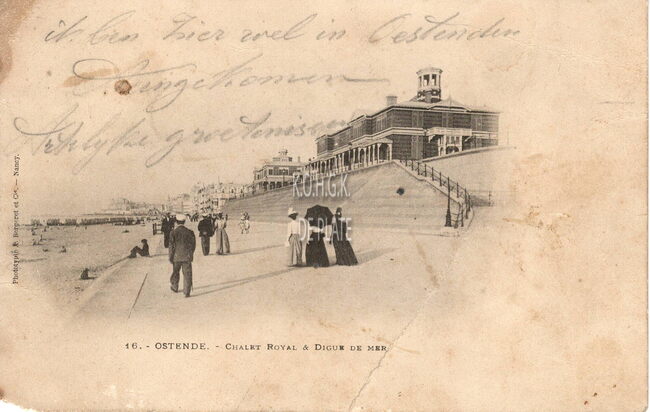 ik ben hier wel in Oestenden
Aangekomen
groetenissen
K.O.H.G.K
DE PLATE
Phototypie R. Bergeret et Cie. — Nancy.
16. - OSTENDE. - CHALET ROYAL & DIGUE DE MER